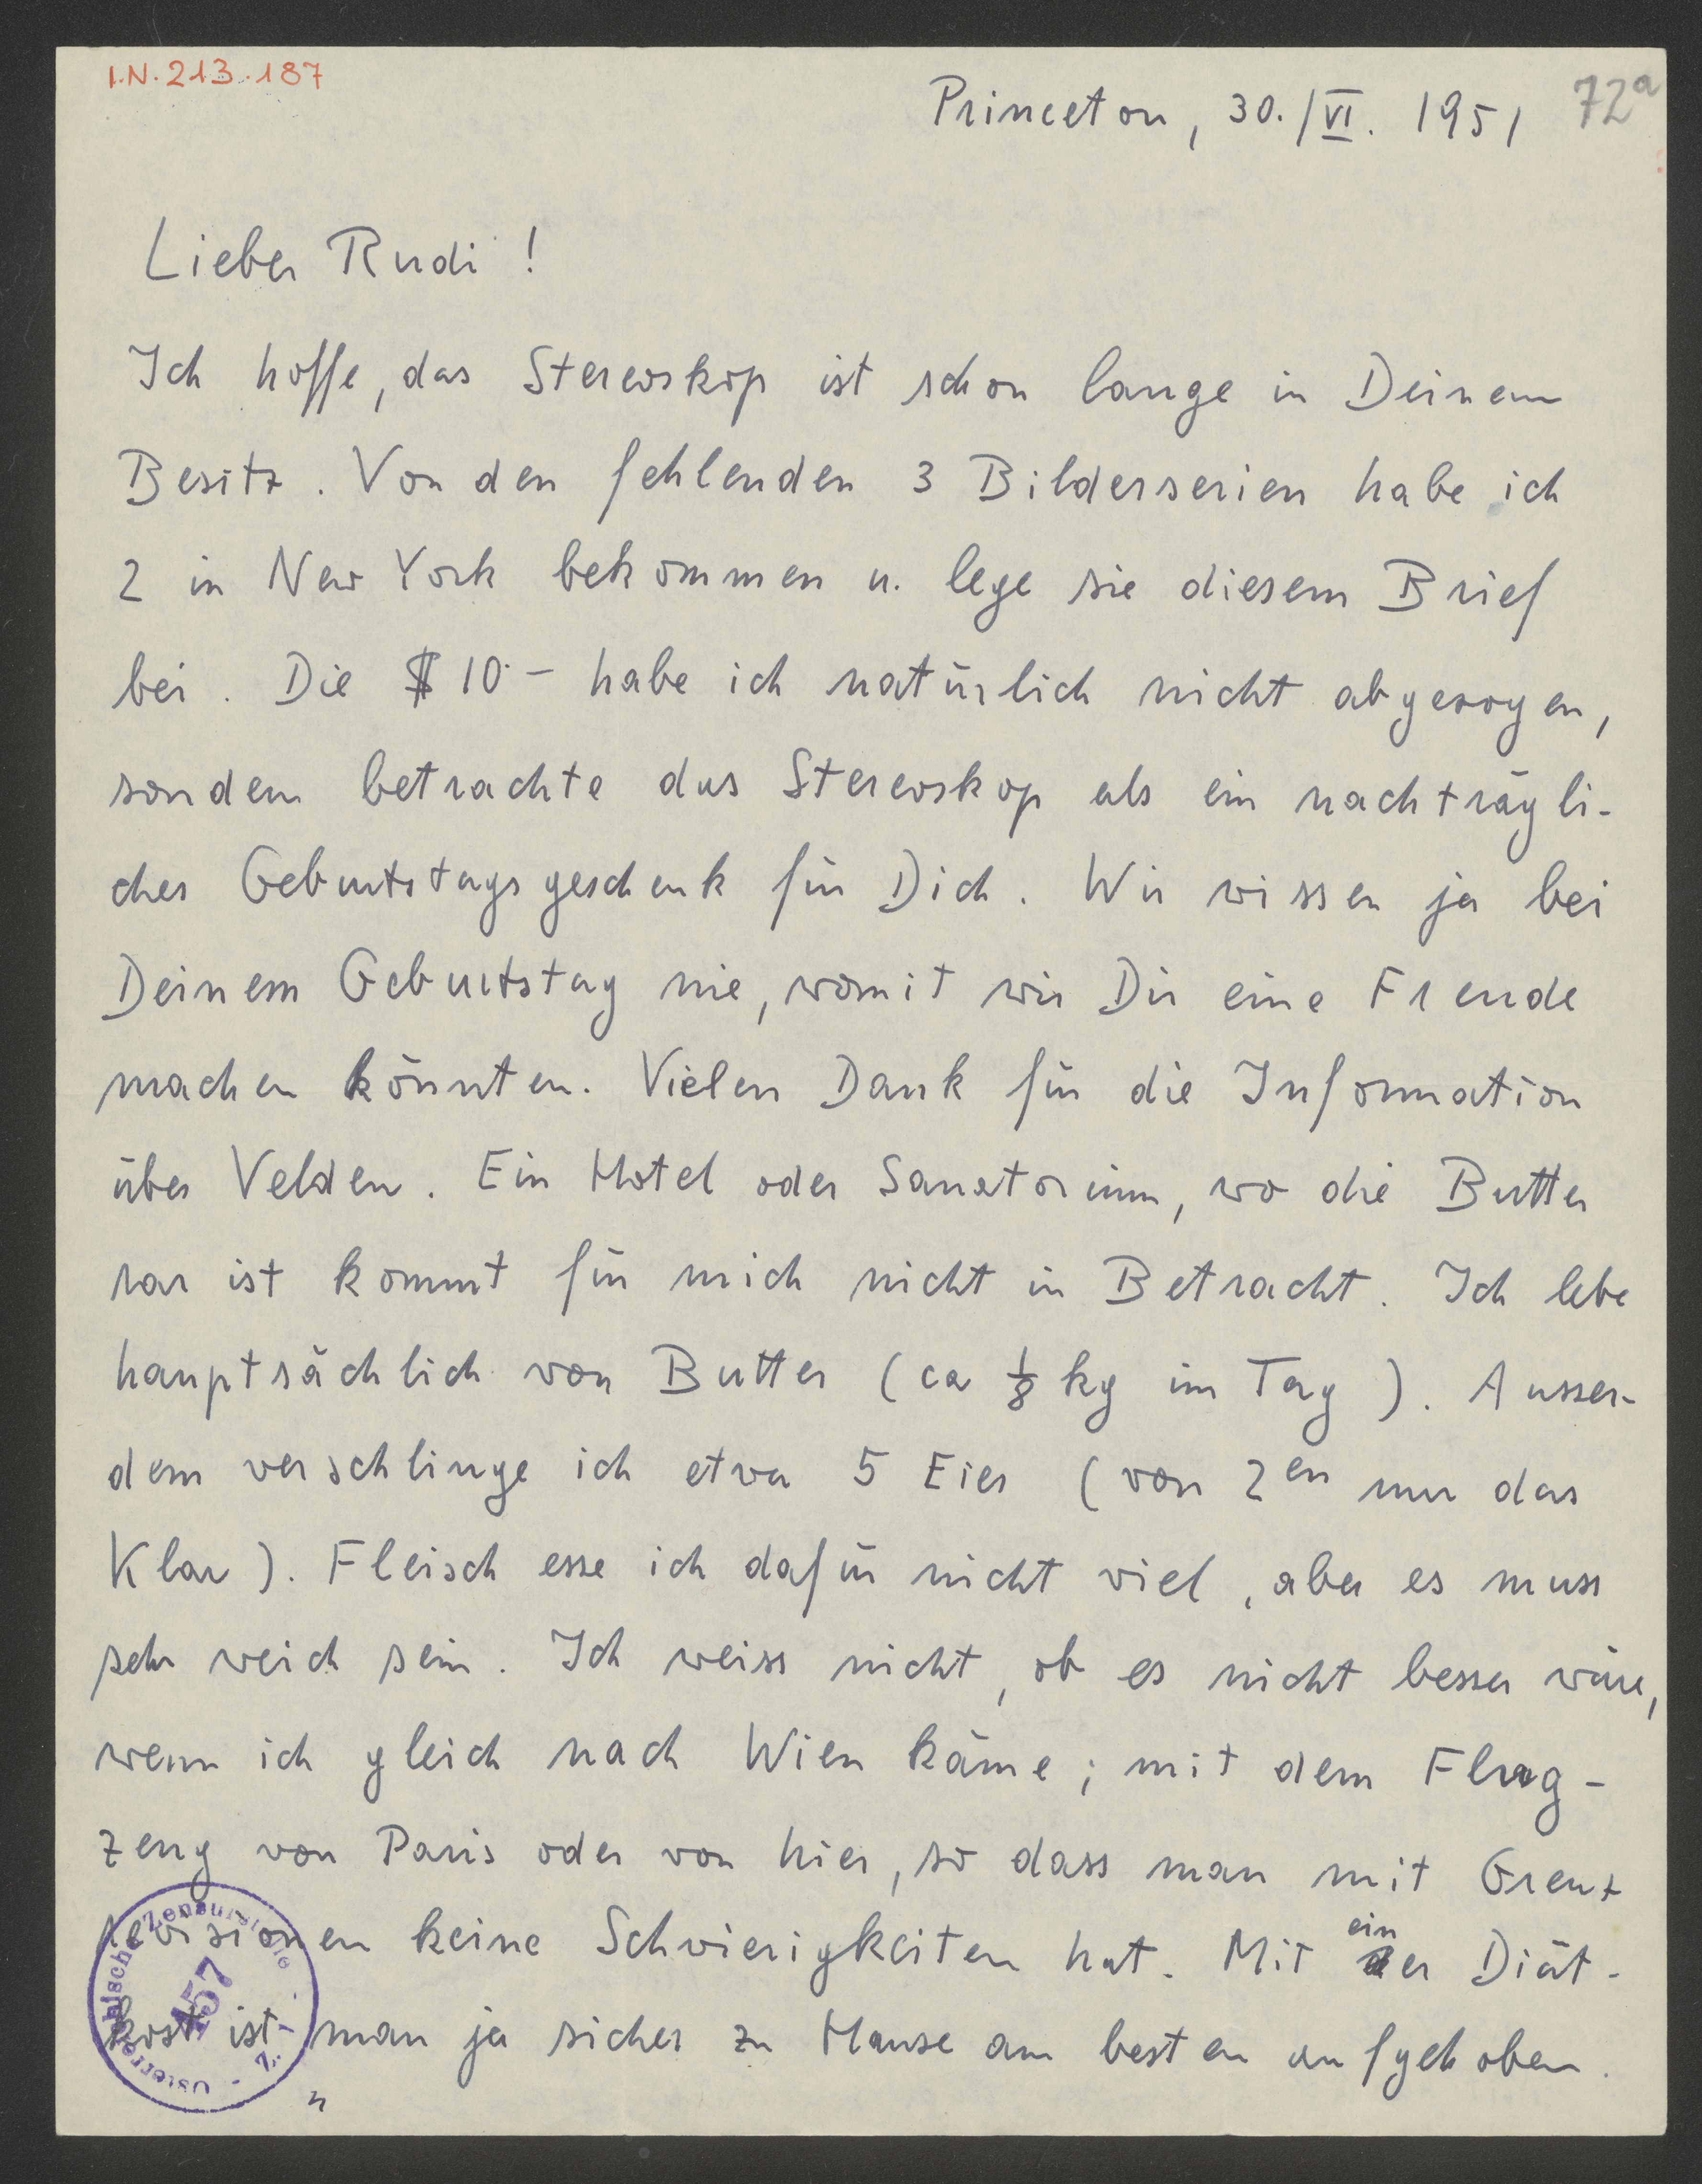 I.N. 213.187
Princeton, 30./VI. 1951
72a
Lieber Rudi !
Ich hoffe, das Stereoskop ist schon lange in Deinem
Besitz. Von den fehlenden 3 Bilderserien habe ich
2 in New York bekommen u. lege sie diesem Brief
bei. Die $ 10·– habe ich natürlich nicht abgezogen,
sondern betrachte das Stereoskop als ein nachträgli-
ches Geburtstagsgeschenk für Dich. Wir wissen ja bei
Deinem Geburtstag nie, womit wir Dir eine Freude
machen könnten. Vielen Dank für die Information
über Velden. Ein Hotel oder Sanatorium, wo die Butter
rar ist kommt für mich nicht in Betracht. Ich lebe
hauptsächlich von Butter (ca ⅛ kg im Tag). Ausser-
dem verschlinge ich etwa 5 Eier (von 2en nur das
Klar). Fleisch esse ich dafür nicht viel, aber es muss
sehr weich sein. Ich weiss nicht, ob es nicht besser wäre,
wenn ich gleich nach Wien käme; mit dem Flug-
zeug von Paris oder von hier, so dass man mit Grenz
revisionen keine Schwierigkeiten hat. Mit einer Diät-
kost ist man ja sicher zu Hause am besten aufgehoben.
Österreichische Zensurstelle
157